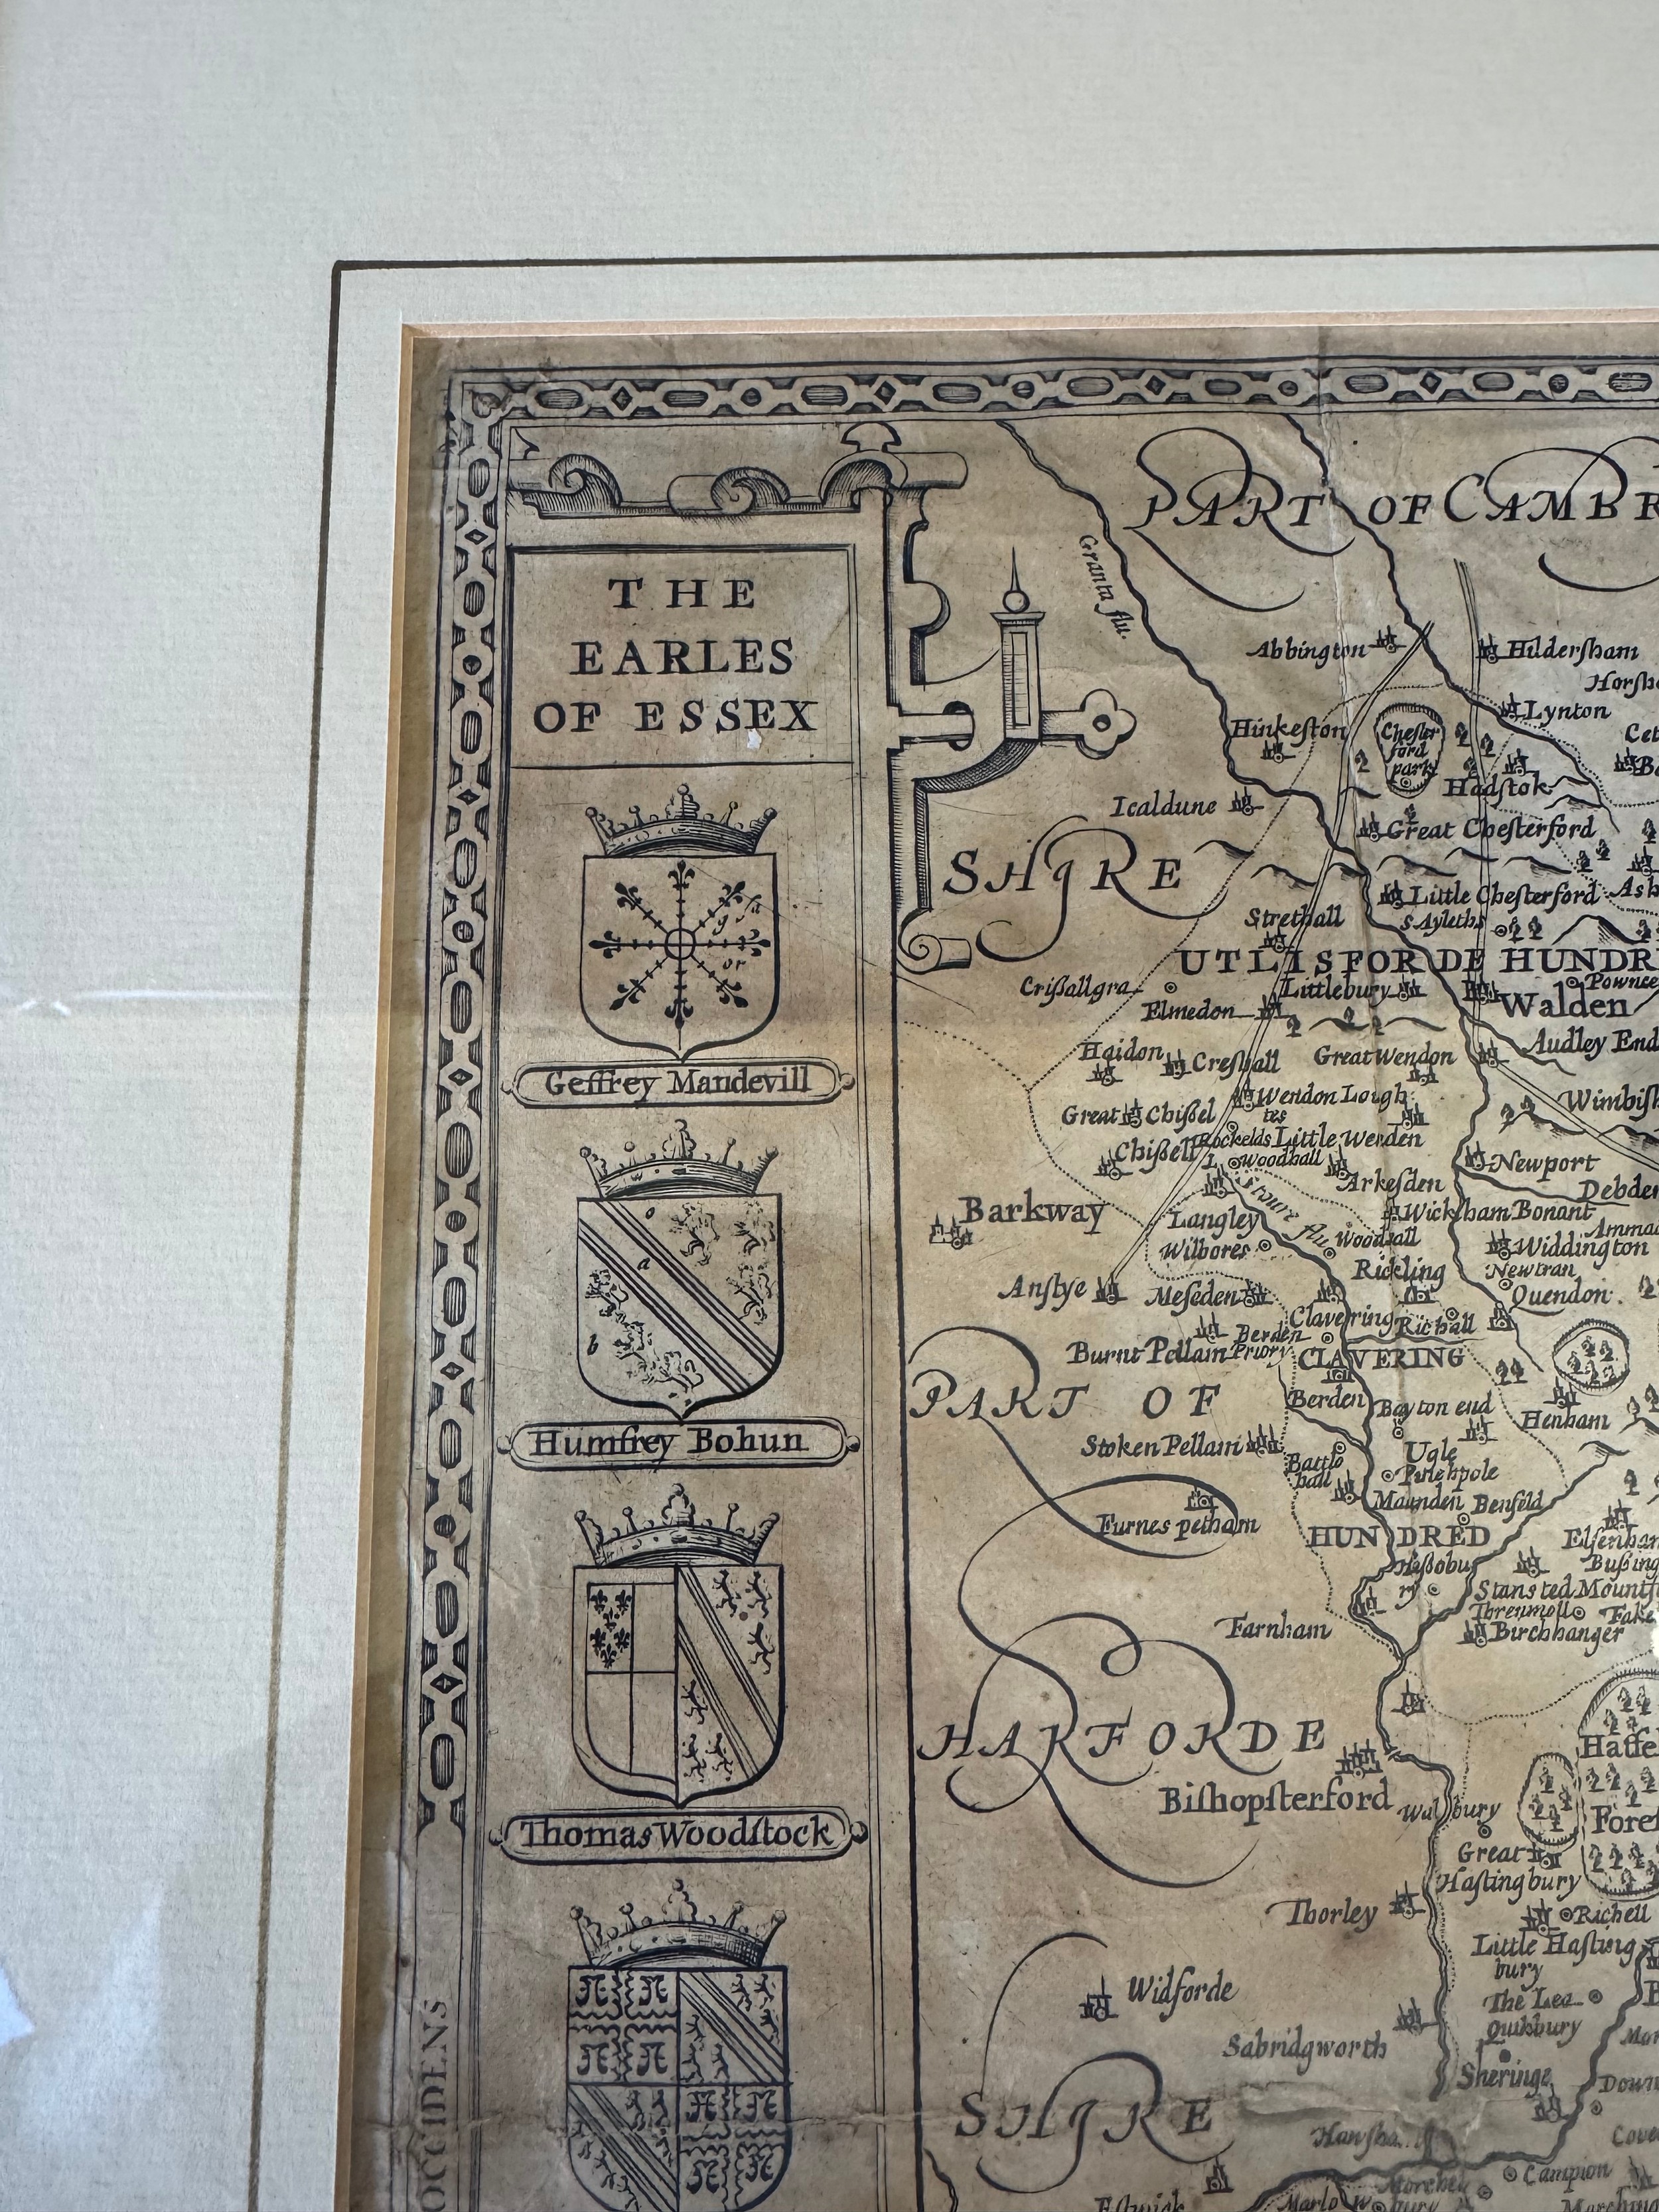 THE
EARLES
OF ESSEX
g
or
Geffrey Mandevill
o
a
b
Humfrey Bohun
Thomas Woodſtock
OCCIDENS
PART OF CAMBR
Granta flu.
Abbington
Hilderſham
Horſh
Lynton
Hinkeſton
Cheſter
ford
park
Hadſtok
Icaldune
Great Cheſterford
SHIRE
Little Cheſterford
Strethall
S Ayleths
UTLISFORDE HUNDR
Crißallgra
Littlebury
Pownce
Elmedon
Walden
Audley End
Haidon
Creshall
Great Wendon
Wimbiſh
Great Chißel
Wendon Lough
tes
Chißell L
Rockelds
Little Werden
Woodhall
Newport
Arkeſden
Debden
Barkway
Stoure flu
Langley
Wickham Bonant
Wilbores
Woodhall
Widdington
Rickling
Newtran
Anſtye
Meſeden
Quendon
Clavering
Richall
Berden
Priory
Burnt Pellam
CLAVERING
PART OF
Berden
Bayton end
Henham
Stoken Pellam
Ugle
Battle
hall
Pinchpole
Furnes pelham
Manden
Benfeld
HUNDRED
Elſenham
Haßobu
ry
Bußing
Stansted Mountf
Farnham
Birchhanger
HARFORDE
Hatfe
Biſhopſterford
Walbury
Foreſ
Great
Haſtingbury
Thorley
Richell
Little Haſting
bury
Widforde
The Lea
Quikbury
Sabridgworth
Sheringe
Down
SHIRE
Campion